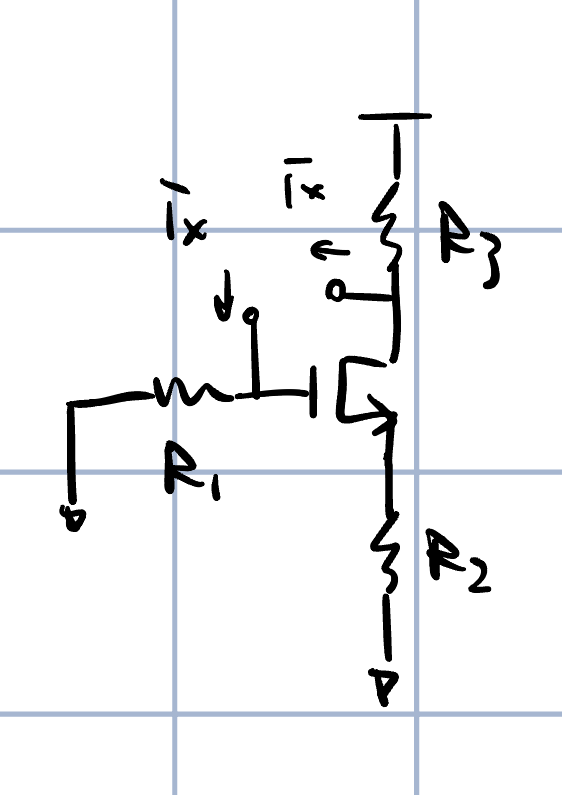 Ix
Ix
R3
R1
R2